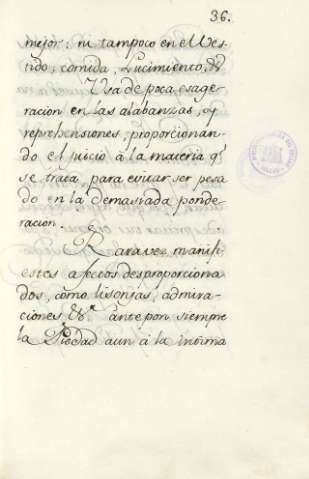 36.
mejor: ni tampoco en el Ves-
tido, comida, Lucimiento, &
Usa de poca exage-
racion en las alabanzas, y
reprehensiones, proporcionan-
do el juicio à la materia qe
se trata, para evitar ser pesa
do en la demasiada ponde-
racion.
Rara vez manifi-
estes afectos desproporciona-
dos, como lisonjas, admira-
ciones &a antepon siempre
la Piedad aun à la intima